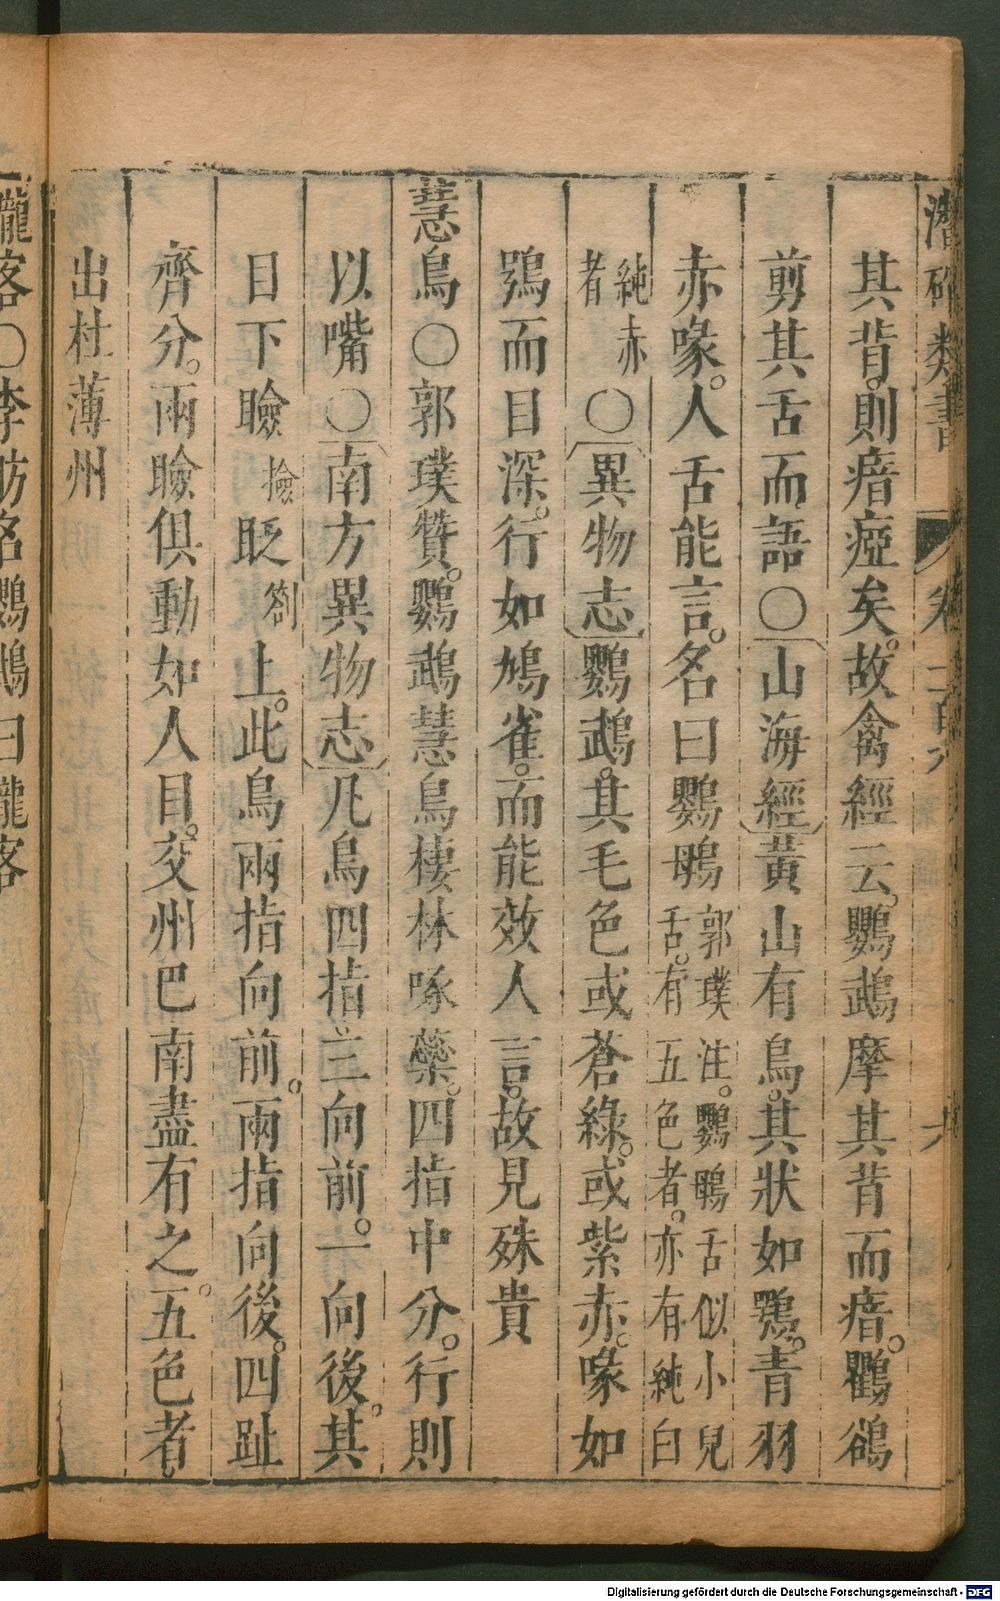 其背則瘖瘂矣故禽經云鸚䳇摩其背而瘖鸜鵒
剪其舌而語〇山海經黃山有鳥其狀如鴞青羽
赤喙人舌能言名曰鸚䳇郭璞注鸚䳇舌似小兒舌有五色者亦有純白
純赤者〇異物志鸚䳇其毛色或蒼綠或紫赤喙如
鴞而目深行如鳩雀而能效人言故見殊貴
慧鳥〇郭璞贊鸚䳇慧鳥棲林啄蘂四指中分行則
以嘴〇南方異物志凡鳥四指三向前一向後其
目下瞼撿眨劄上此鳥兩指向前兩指向後四趾
齊分兩瞼俱動如人目交州巴南盡有之五色者
出杜薄州
隴客〇李昉名鸚䳇曰隴客
Digitalisierung gefördert durch die Deutsche Forschungsgemeinschaft - DFG